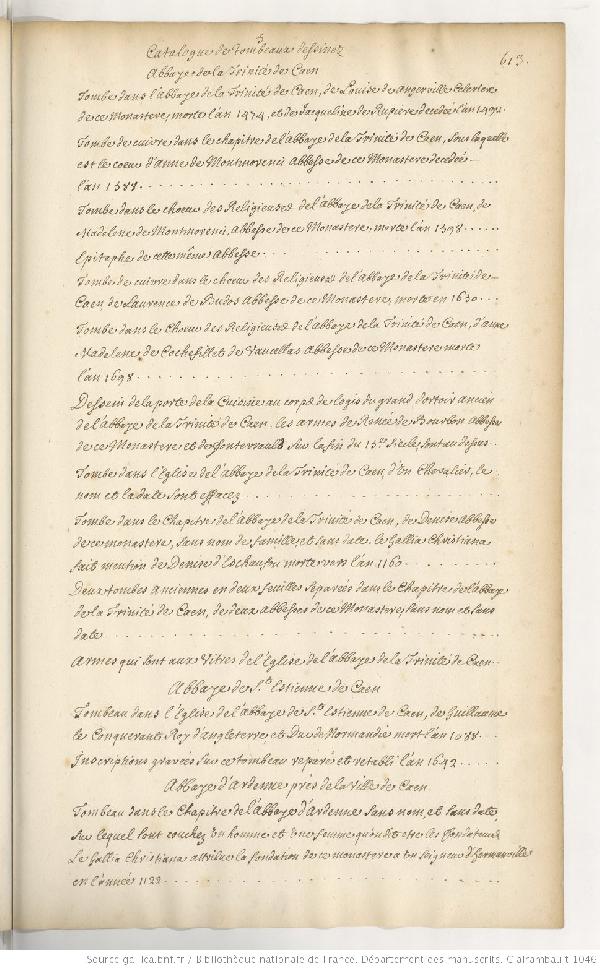 3
Catalogue de tombeaux dessinez
613.
Abbaye de la Trinité de Caen
Tombe dans l'abbaye de la Trinité de Caen, de Louise de Angerville Celeriere
de ce Monastere, morte l'an 1474, et de Jacqueline de Rupiere decedée l'an 1492
Tombe de cuivre dans le chapitre de l'abbaye de la Trinité de Caen, sous laquelle
est le coeur d'anne de Montmorenci Abbesse de ce Monastere decedée
l'an 1588.
Tombe dans le choeur des Religieuses de l'abbaye de la Trinité de Caen, de
Madelene de Montmorenci, Abbesse de ce Monastere, morte l'an 1598
Epitaphe de cette même Abbesse
Tombe de cuivre dans le choeur des Religieuses de l'abbaye de la Trinité de
Caen, de Laurence de Budos Abbesse de ce Monastere, morte en 1650
Tombe dans le Choeur des Religieuses de l'abbaye de la Trinité de Caen, d'anne
Madelene de Cochefillet de Vaucellas Abbesse de ce Monastere morte
l'an 1698
Dessein de la porte de la Cuisine au corps de logis du grand dortoir ancien
de l'Abbaye de la Trinité de Caen. les armes de Renée de Bourbon Abbesse
de ce Monastere et de fontevrauld sur la fin du 15me siecle, sont au dessus
Tombe dans l'Eglise de l'abbaye de la Trinité de Caen, d'Un Chevalier, le
nom et la date sont effacez
Tombe dans le Chapitre de l'Abbaye de la Trinité de Caen, de Denise abbesse
de ce monastere, sans nom de famille, et sans date. le Gallia Christiana
fait mention de Denise d'Eschaufou morte vers l'an 1160
Deux tombes anciennes en deux feuilles separées dans le Chapitre de l'abbaye
de la Trinité de Caen, de deux abbesses de ce Monastere, sans nom et sans
date
Armes qui sont aux Vitres de l'Eglise de l'abbaye de la Trinité de Caen
Abbaye de St. Estienne de Caen
Tombeau dans l'Eglise de l'abbaye de St. Estienne de Caen, de Guillaume
le Conquerant Roy d'angleterre, et Duc de Normandie mort l'an 1088
Inscriptions gravées sur ce tombeau reparé et retabli l'an 1642
Abbaye d'Ardenne près de la Ville de Caen
Tombeau dans le Chapitre de l'Abbaye d'Ardenne sans nom, et sans date,
sur lequel sont couchez un homme et une femme qu'on dit estre les fondateurs
Le Gallia Christiana attribue la fondation de ce monastere a un seigneur d'hermanville
en l'année 1122
Source gallica.bnf.fr / Bibliothèque nationale de France. Département des manuscrits. Clairambault 1046